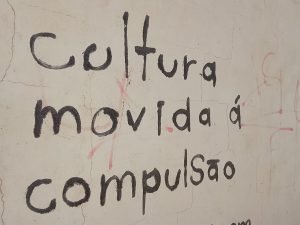 cultura
movida á
compulsão